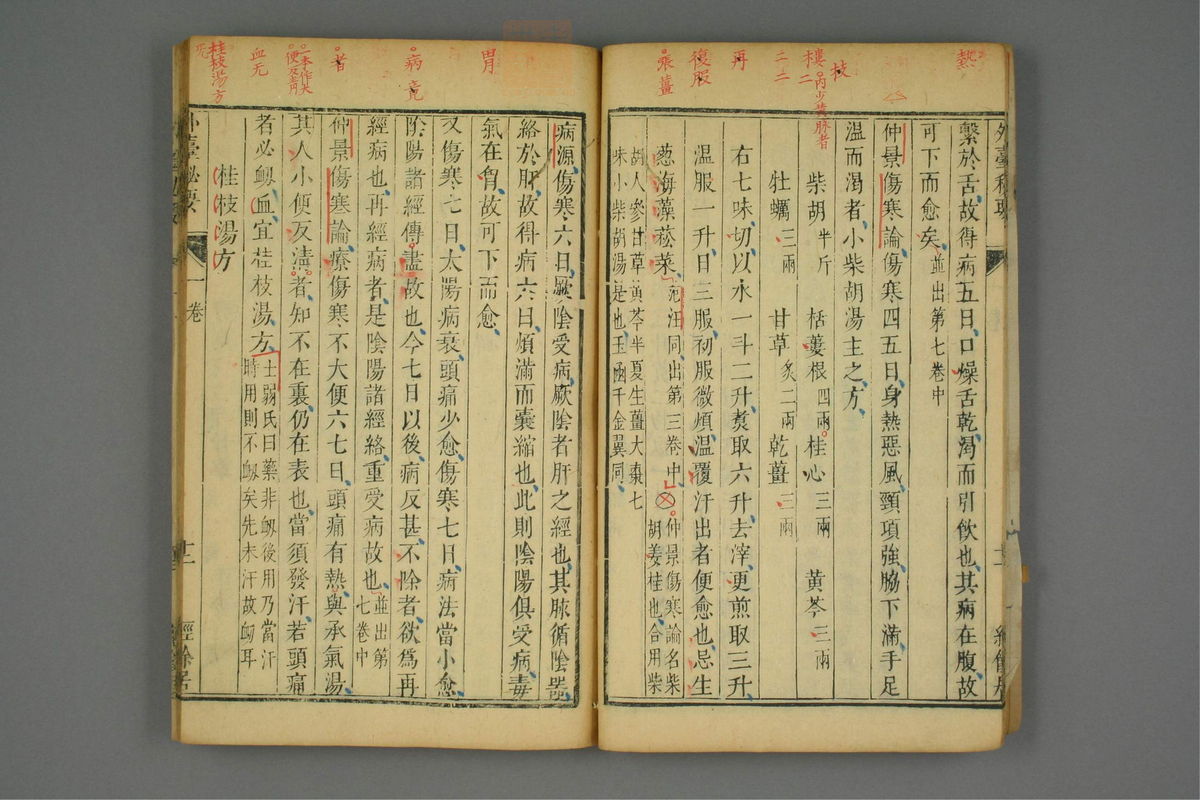 繫於舌故得病五日口燥舌乾渴而引飲也其病在腹故
可下而愈矣並出第七卷中
仲景傷寒論傷寒四五日身熱惡風頸項強脇下滿手足
温而渴者小柴胡湯主之方
柴胡半斤 栝蔞根四兩 桂心三兩 黃芩三兩
牡蠣三兩 甘草炙二兩 乾薑三兩
右七味切以水一斗二升煑取六升去滓更煎取三升
温服一升日三服初服微煩温覆汗出者便愈也忌生
葱海藻菘菜
汜汪同出第三卷中
仲景傷寒論名柴
胡姜桂也合用柴
胡人參甘草黄芩半夏生薑大棗七
味小柴胡湯是也玉凾千金翼同
病源傷寒六日厥陰受病厥陰者肝之經也其脉循陰器
絡於肝故得病六日煩滿而囊縮也此則陰陽俱受病毒
氣在胷故可下而愈
又傷寒七日太陽病衰頭痛少愈傷寒七日病法當小愈
陰陽諸經傳盡故也今七日以後病反甚不除者欲為再
經病也再經病者是陰陽諸經絡重受病故也並出第
七卷中
仲景傷寒論療傷寒不大便六七日頭痛有熱與承氣湯
其人小便反清者知不在裏仍在表也當須發汗若頭痛
者必衂血宜桂枝湯方
士弱氏曰藥非衂後用乃當汗
時用則不衂矣先未汗故衂耳
桂枝湯方
外臺秘要
一卷
十二
經餘居
熱
枝
樓二
内少黃脉者
二三
再
復服
張薑
胃
病竟
者
一本作大
便反青
血无
桂枝湯方